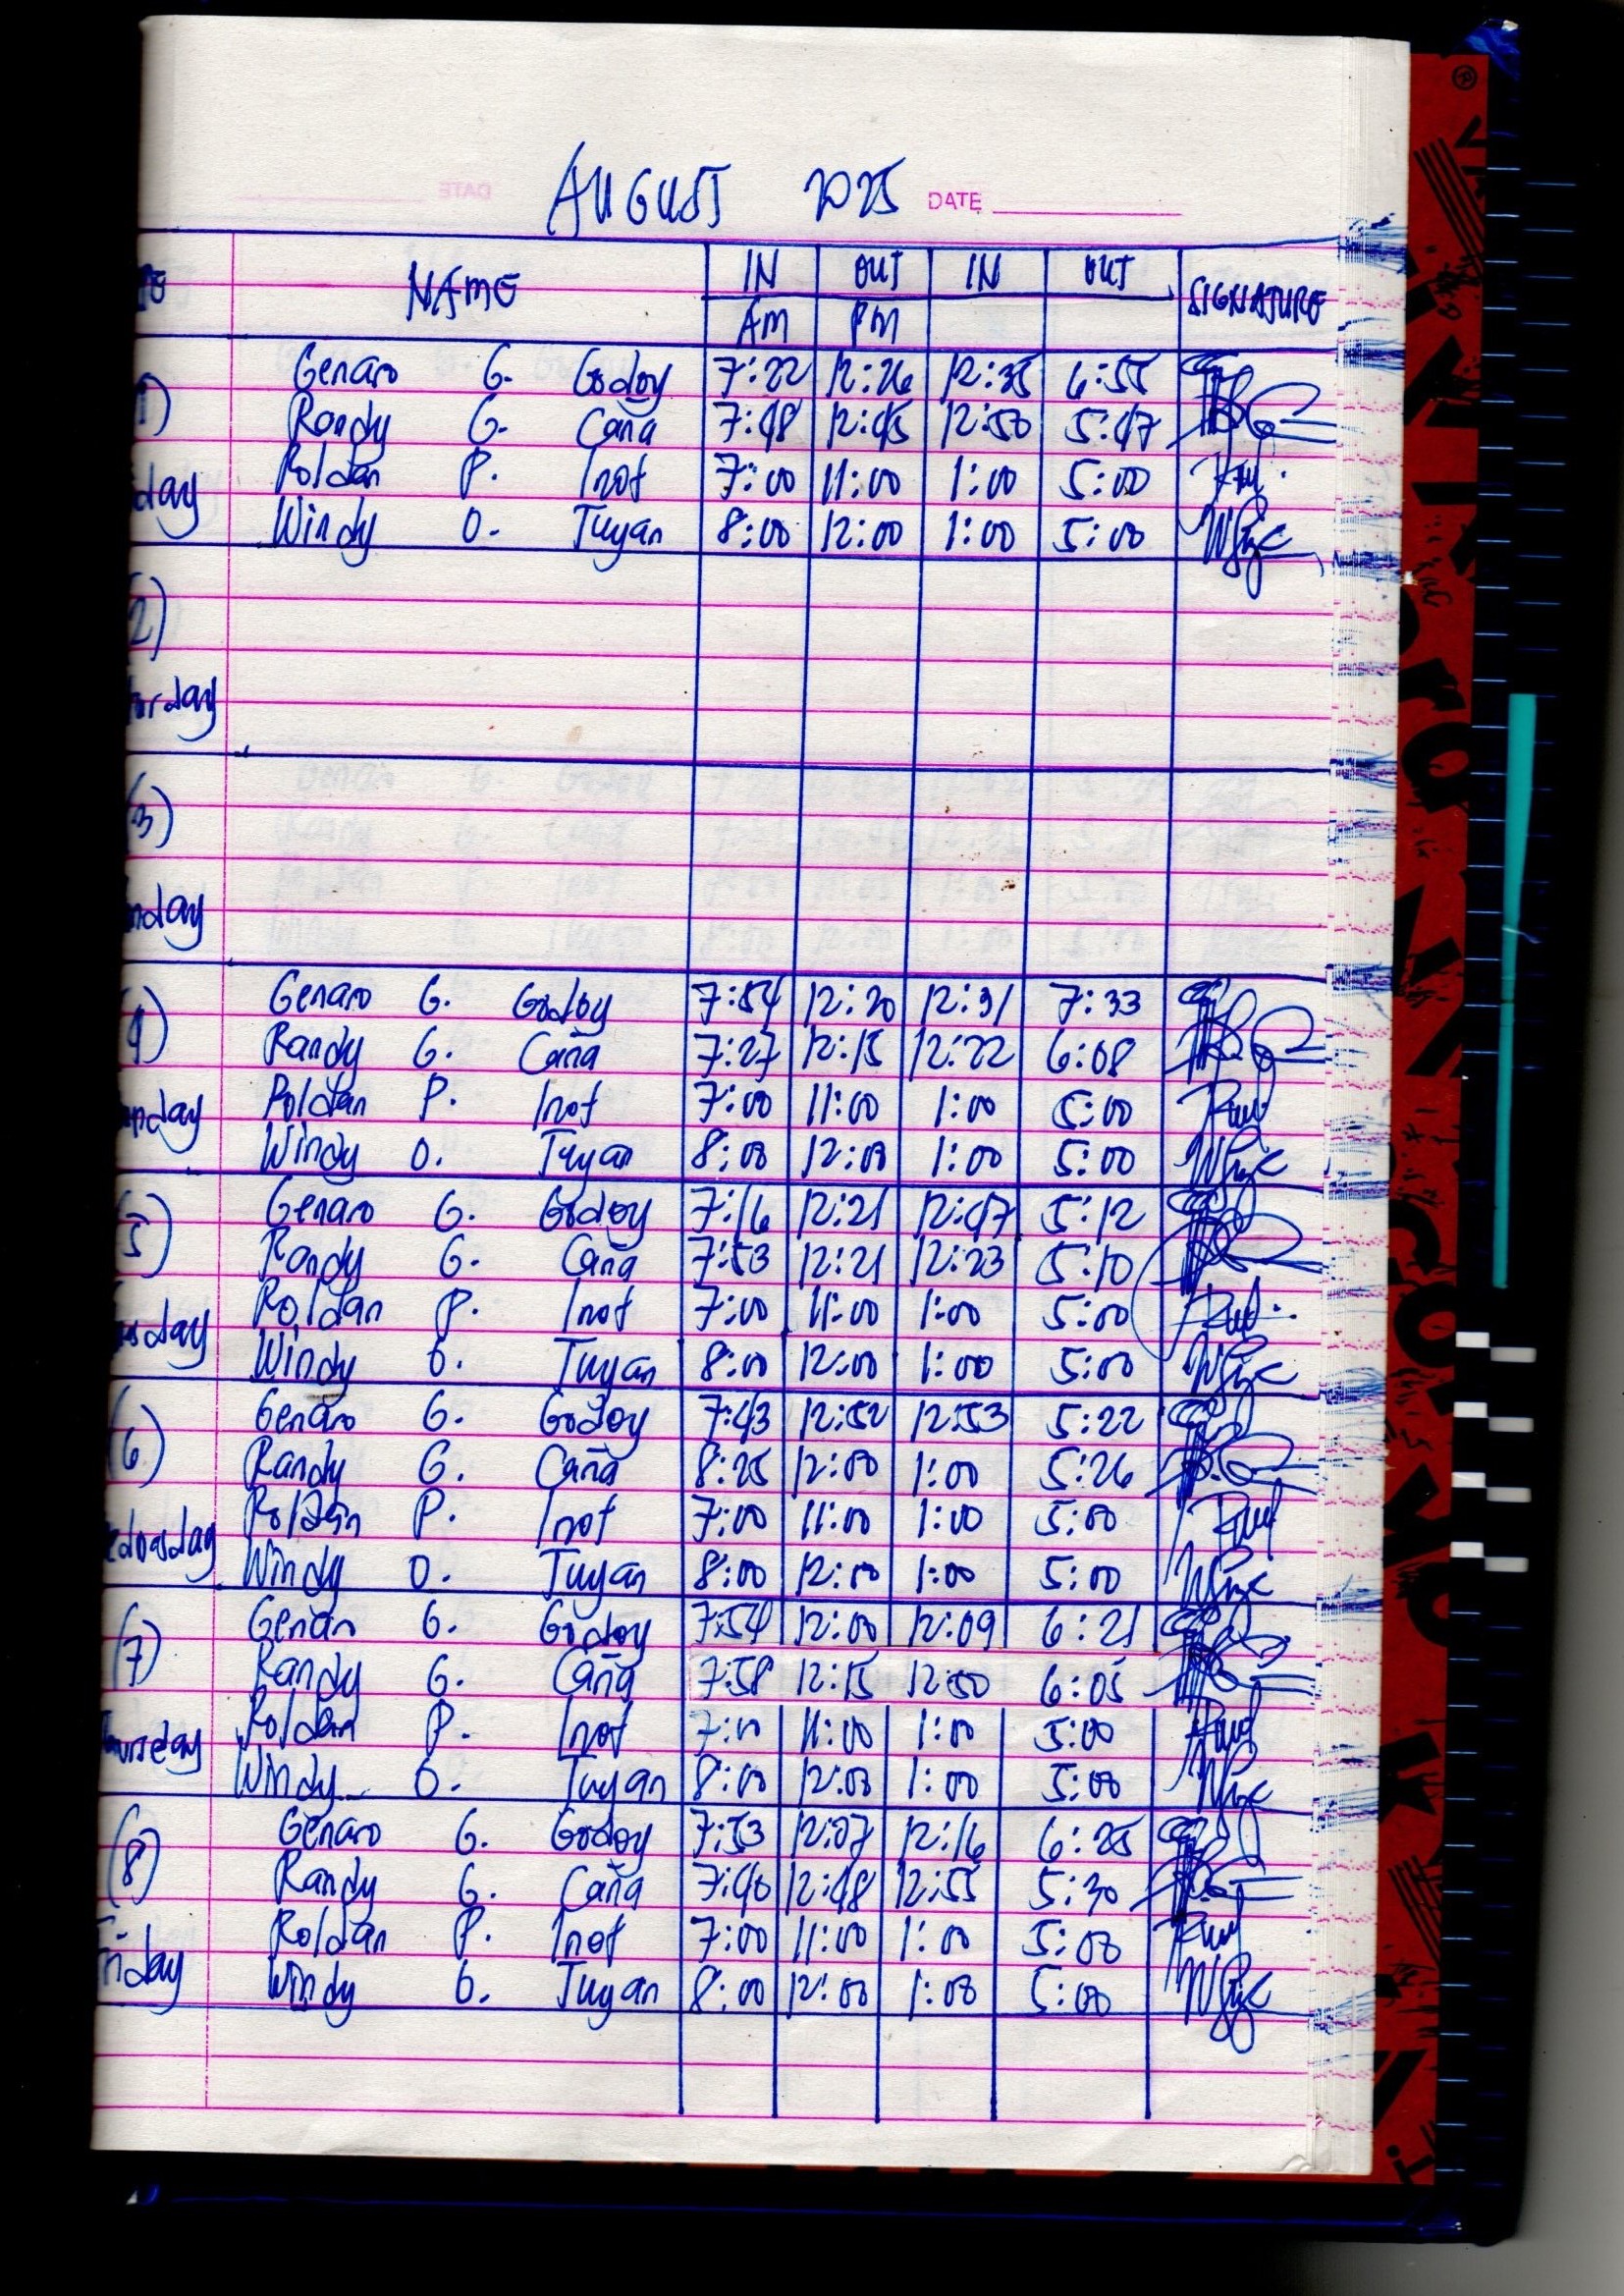 AUGUST 2025 DATE
NAME IN OUT IN OUT SIGNATURE
AM PM
Genaro G. Godoy 7:22 12:26 12:35 6:55
1) Randy G. Caña 7:48 12:45 12:50 5:47
Roldan P. Inot 7:00 11:00 1:00 5:00
day Windy O. Tuyan 8:00 12:00 1:00 5:00
2)
urday
3)
nday
Genaro G. Godoy 7:54 12:20 12:31 7:33
4) Randy G. Caña 7:27 12:15 12:22 6:08
Roldan P. Inot 7:00 11:00 1:00 5:00
nday Windy O. Tuyan 8:00 12:00 1:00 5:00
Genaro G. Godoy 7:16 12:21 12:47 5:12
5) Randy G. Caña 7:53 12:21 12:23 5:10
Roldan P. Inot 7:00 11:00 1:00 5:00
sday Windy O. Tuyan 8:00 12:00 1:00 5:00
Genaro G. Godoy 7:43 12:52 12:53 5:22
(6) Randy G. Caña 8:25 12:00 1:00 5:26
Roldan P. Inot 7:00 11:00 1:00 5:00
ednesday Windy O. Tuyan 8:00 12:00 1:00 5:00
Genaro G. Godoy 7:54 12:00 12:09 6:21
(7) Randy G. Caña 7:58 12:15 12:50 6:05
Roldan P. Inot 7:00 11:00 1:00 5:00
hursday Windy O. Tuyan 8:00 12:00 1:00 5:00
Genaro G. Godoy 7:53 12:07 12:16 6:25
(8) Randy G. Caña 7:40 12:48 12:55 5:30
Roldan P. Inot 7:00 11:00 1:00 5:00
riday Windy O. Tuyan 8:00 12:00 1:00 5:00